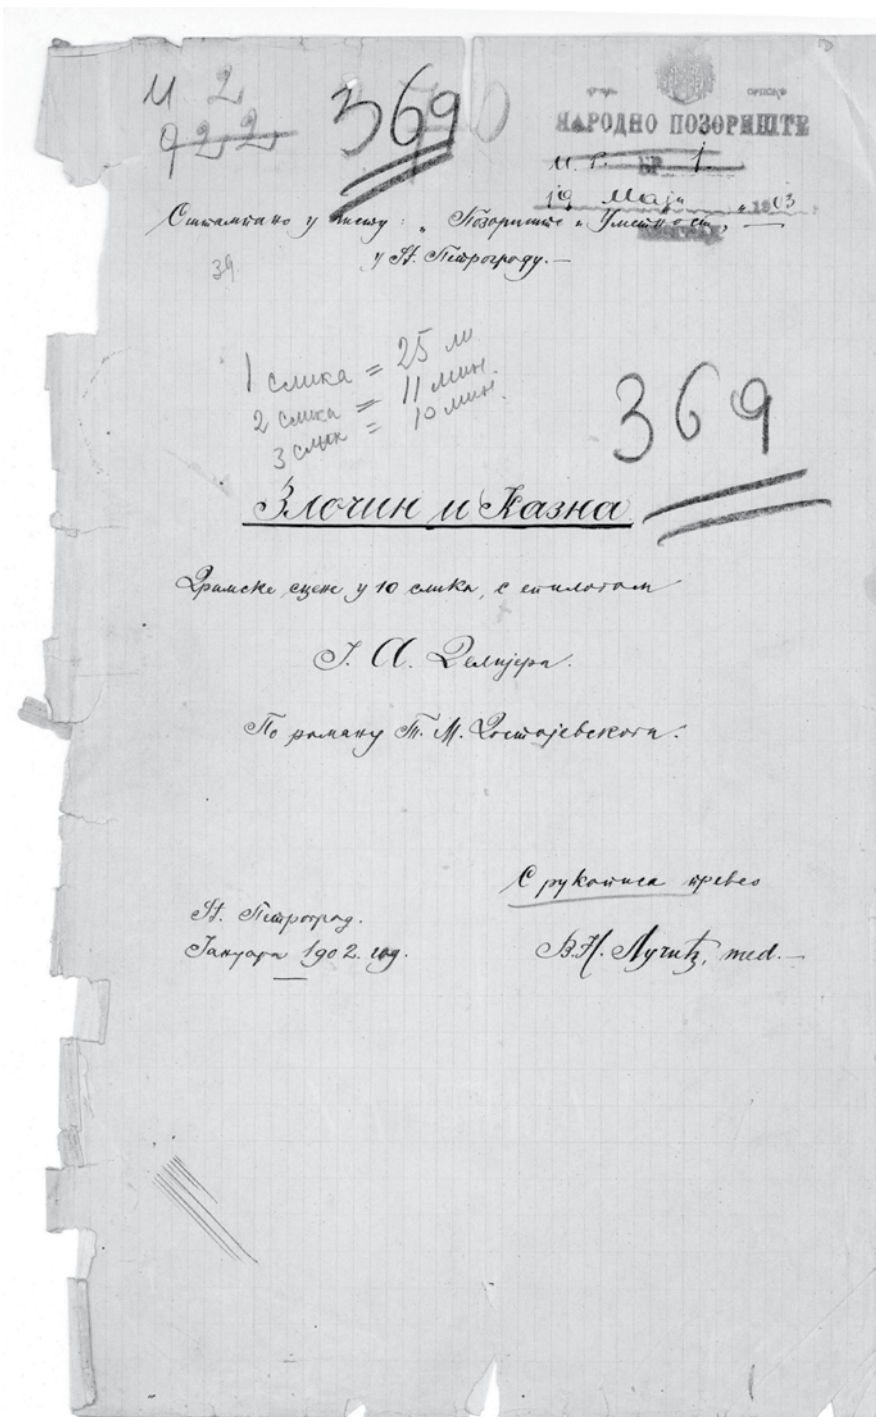 И 2
922
369
НАРОДНО ПОЗОРИШТЕ
БР. 1.
19 Маја 1903
Оштампано у листу: „Позориште и Уметност,"
у St. Петрограду.—
39
1 слика = 25 м
2 слика = 11 мин.
3 слик = 10 мин.
369
Злочин и Казна
Драмске сцене у 10 слика, с епилогом
Ј. А. Делијера.
По роману Т. М. Достојевскога.
С рукописа превео
St. Петроград.
Јануара 1902. год.
В.Н. Лучић, med.—